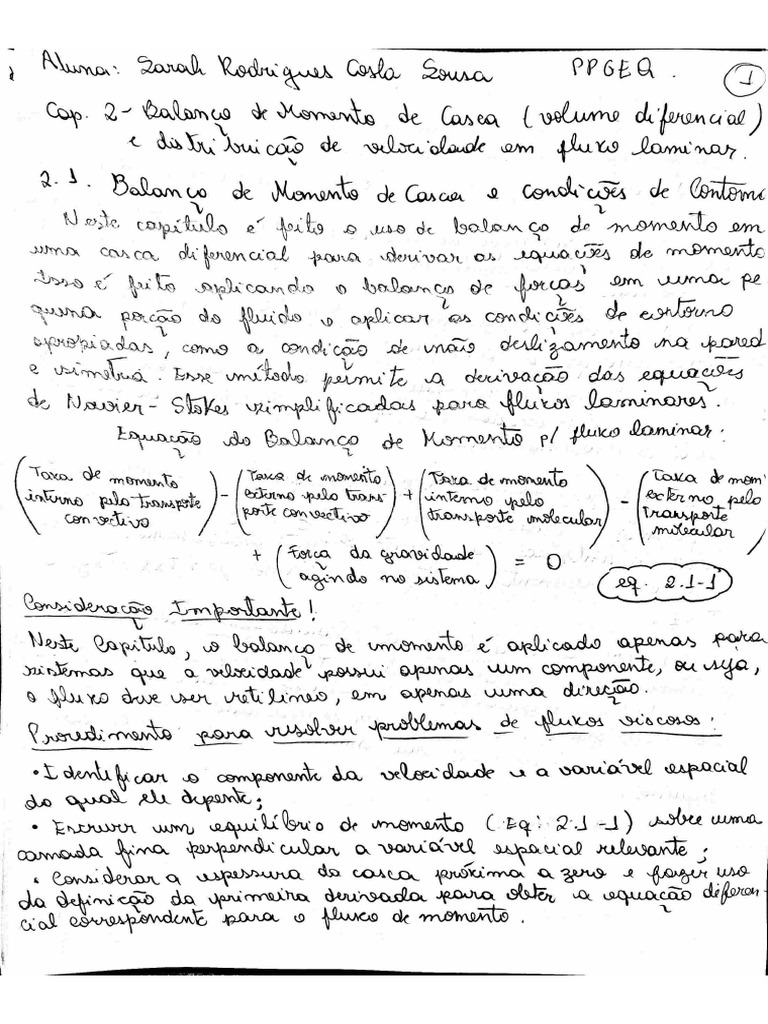 Aluna: Sarah Rodrigues Costa Sousa PPGEQ. 1
Cap. 2 - Balanço de Momento de Casca (volume diferencial)
e distribuição de velocidade em fluxo laminar.
2.1. Balanço de Momento de Casca e condições de Contorno
Neste capítulo é feito o uso de balanço de momento em
uma casca diferencial para derivar as equações de momento
Isso é feito aplicando o balanço de forças em uma pe
quena porção do fluido e aplicar as condições de contorno
apropiadas, como a condição de não deslizamento na pared
e simetria. Esse método permite a derivação das equações
de Navier-Stokes simplificadas para fluxos laminares.
Equação do Balanço de Momento p/ fluxo laminar:
(Taxa de momento interno pelo transporte convectivo) - (Taxa de momento externo pelo transporte convectivo) + (Taxa de momento interno pelo transporte molecular) - (Taxa de mom externo pelo transporte molecular)
+ (Força da gravidade agindo no sistema) = 0 eq. 2.1-1
Consideração Importante!
Neste Capítulo, o balanço de momento é aplicado apenas para
sistemas que a velocidade possui apenas um componente, ou seja,
o fluxo deve ser retilíneo, em apenas uma direção.
Procedimento para resolver problemas de fluxos viscosos:
• Identificar o componente da velocidade e a variável espacial
do qual ele depente;
• Escrever um equilíbrio de momento (Eq: 2.1-1) sobre uma
camada fina perpendicular a variável espacial relevante;
• Considerar a espessura da casca próxima a zero e fazer uso
da definição da primeira derivada para obter a equação diferen-
cial correspondente para o fluxo de momento.